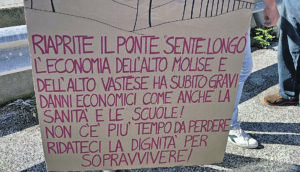 RIAPRITE IL PONTE "SENTE LONGO"
L'ECONOMIA DELL'ALTO MOLISE E
DELL'ALTO VASTESE HA SUBITO GRAVI
DANNI ECONOMICI COME ANCHE LA
SANITÀ E LE SCUOLE!
NON C'È PIU' TEMPO DA PERDERE
RIDATECI LA DIGNITÀ PER
SOPRAVVIVERE!